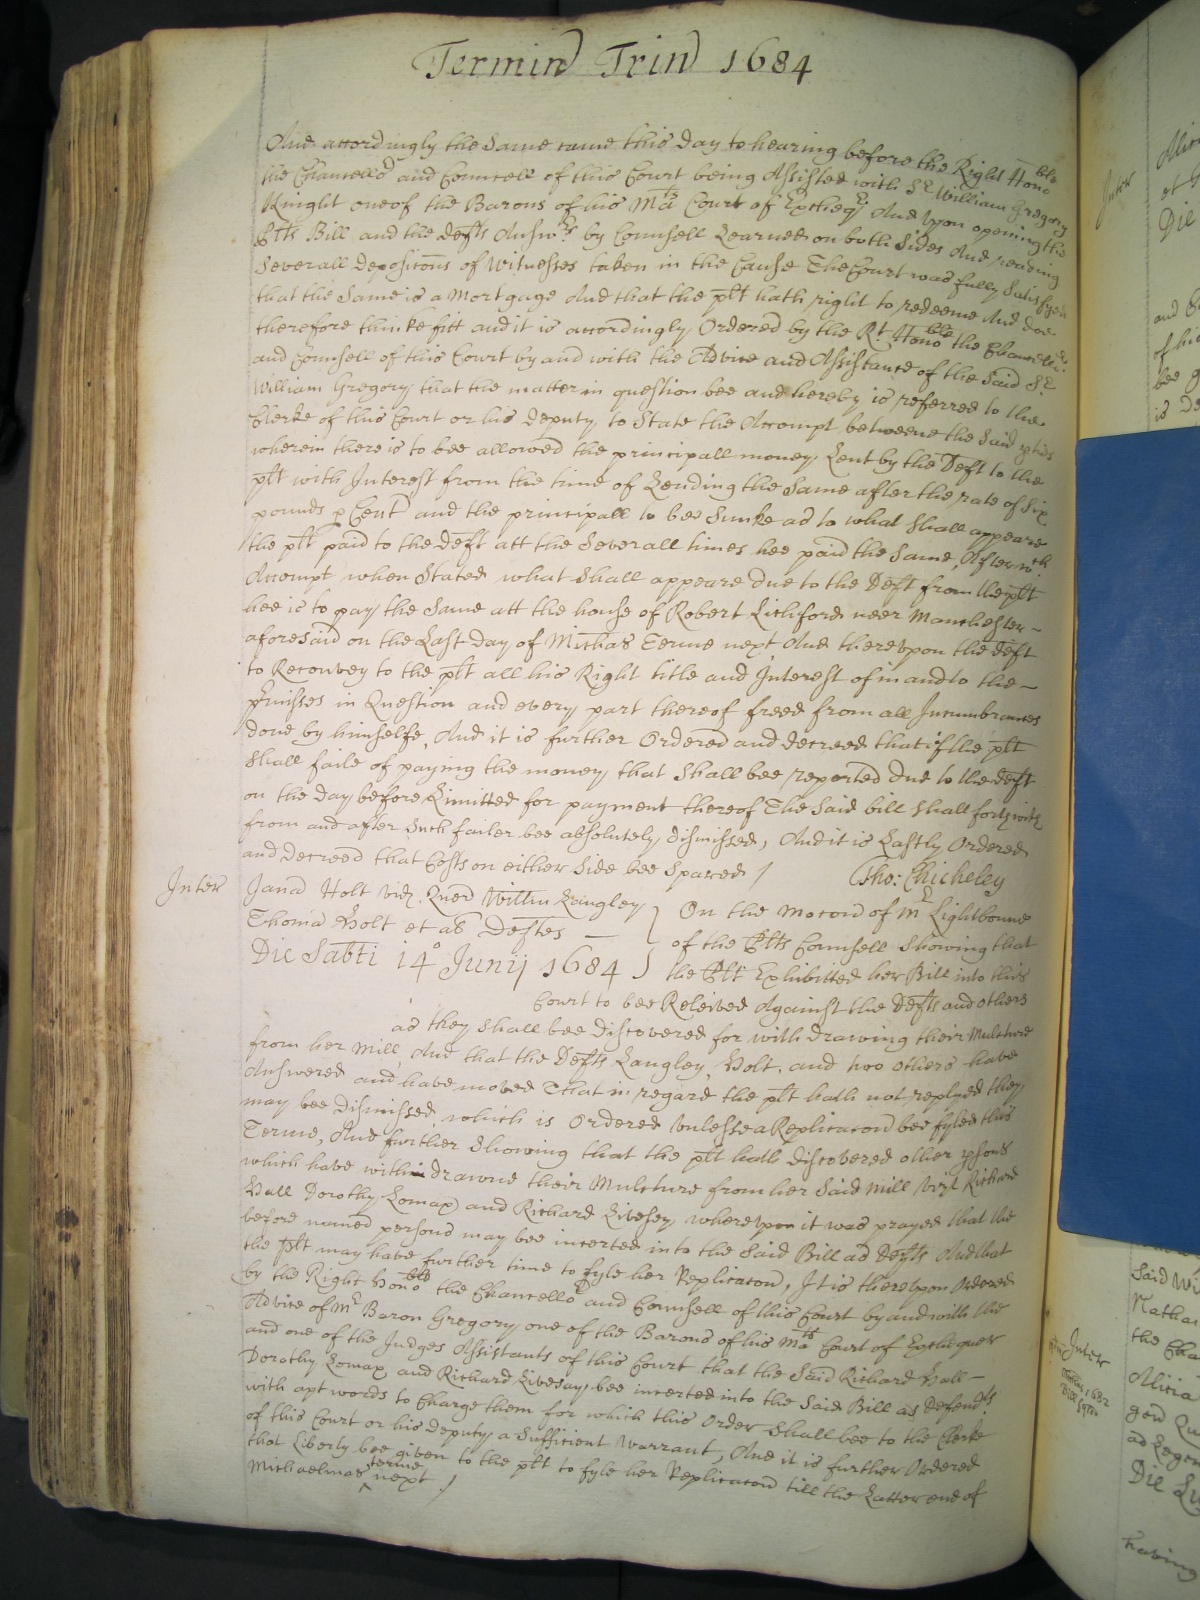 Termino Trin 1684
And accordingly the Same came this day to hearing before the Right Honoble
the Chancellor and Councell of this Court being Assisted with Sr William Gregory
Knight one of the Barons of his Mats Court of Excheqr And upon opening the
Plts Bill and the Defts Answrs by Counsell Learned on both Sides And reading
Severall Depositons of Witnesses taken in the Cause The Court was fully Satisfyed
that the Same is a Mortgage And that the plt hath right to redeeme And doe
therefore thinke fitt and it is accordingly Ordered by the Rt Honoble the Chancellor
and Counsell of this Court by and with the Advice and Assistance of the Said Sr
William Gregory that the matter in question bee and hereby is referred to the
Clerke of this Court or his Deputy to State the Accompt betweene the Said pties
wherein there is to bee allowed the principall money Lent by the Deft to the
plt with Interest from the time of Lending the Same after the rate of Six
pounds p Cent and the principall to bee Sunke as to what Shall appeare
the plt paid to the Deft att the Severall times hee paid the Same, After wch
Accompt when Stated what Shall appeare due to the Deft from the plt
hee is to pay the Same att the house of Robert Lichford neer Manchester
aforesaid on the Last day of Michas Terme next And thereupon the deft
to Reconvey to the plt all his Right title and Interest of in and to the
prmisses in Question and every part thereof freed from all Incumbrances
done by himselfe, And it is further Ordered and decreed that if the plt
Shall faile of paying the money that Shall bee reported due to the deft
on the day before Limitted for payment thereof The Said bill Shall forthwith
from and after Such failer bee absolutely dismissed, And it is Lastly Ordered
and Decreed that Costs on either Side bee Spared /
Tho: Chicheley
Inter
Jana Holt vid Quer Willm Langley
Thoma Holt et als Deftes
Die Sabti 14o Junij 1684
On the Mocon of Mr Lightbowne
of the Plts Counsell Showing that
the Plt Exhibitted her Bill into this
Court to bee Releived Against the Defts and others
as they Shall bee discovered for with drawing their Mulcture
from her Mill, And that the Defts Langley, Holt, and two others have
Answered and have moved That in regard the plt hath not replyed they
may bee dismissed which is Ordered unlesse a Replicacon bee fyled this
Terme, And further Showing that the plt hath discovered other psons
which have with drawne their Mulcture from her Said Mill vizt Richard
Hall Dorothy Lomax and Richard Livesey whereupon it was prayed that the
before named persons may bee incerted into the Said Bill as Defts And that
the plt may have further time to fyle her Replicacon, It is thereupon Ordered
by the Right Honoble the Chancellor and Counsell of this Court by and with the
Advice of Mr Baron Gregory one of the Barons of his Mats Court of Exchequer
and one of the Judges Assistants of this Court that the Said Richard Hall
Dorothy Lomax and Richard Livesay bee incerted into the Said Bill as Defendts
with apt words to Charge them for which this Order Shall bee to the Clerke
of this Court or his Deputy a Sufficient Warrant, And it is further Ordered
that Liberty bee given to the plt to fyle her Replicacon till the Latter end of
Michaelmas terme next /
Inter
Die
Inter
Die
having